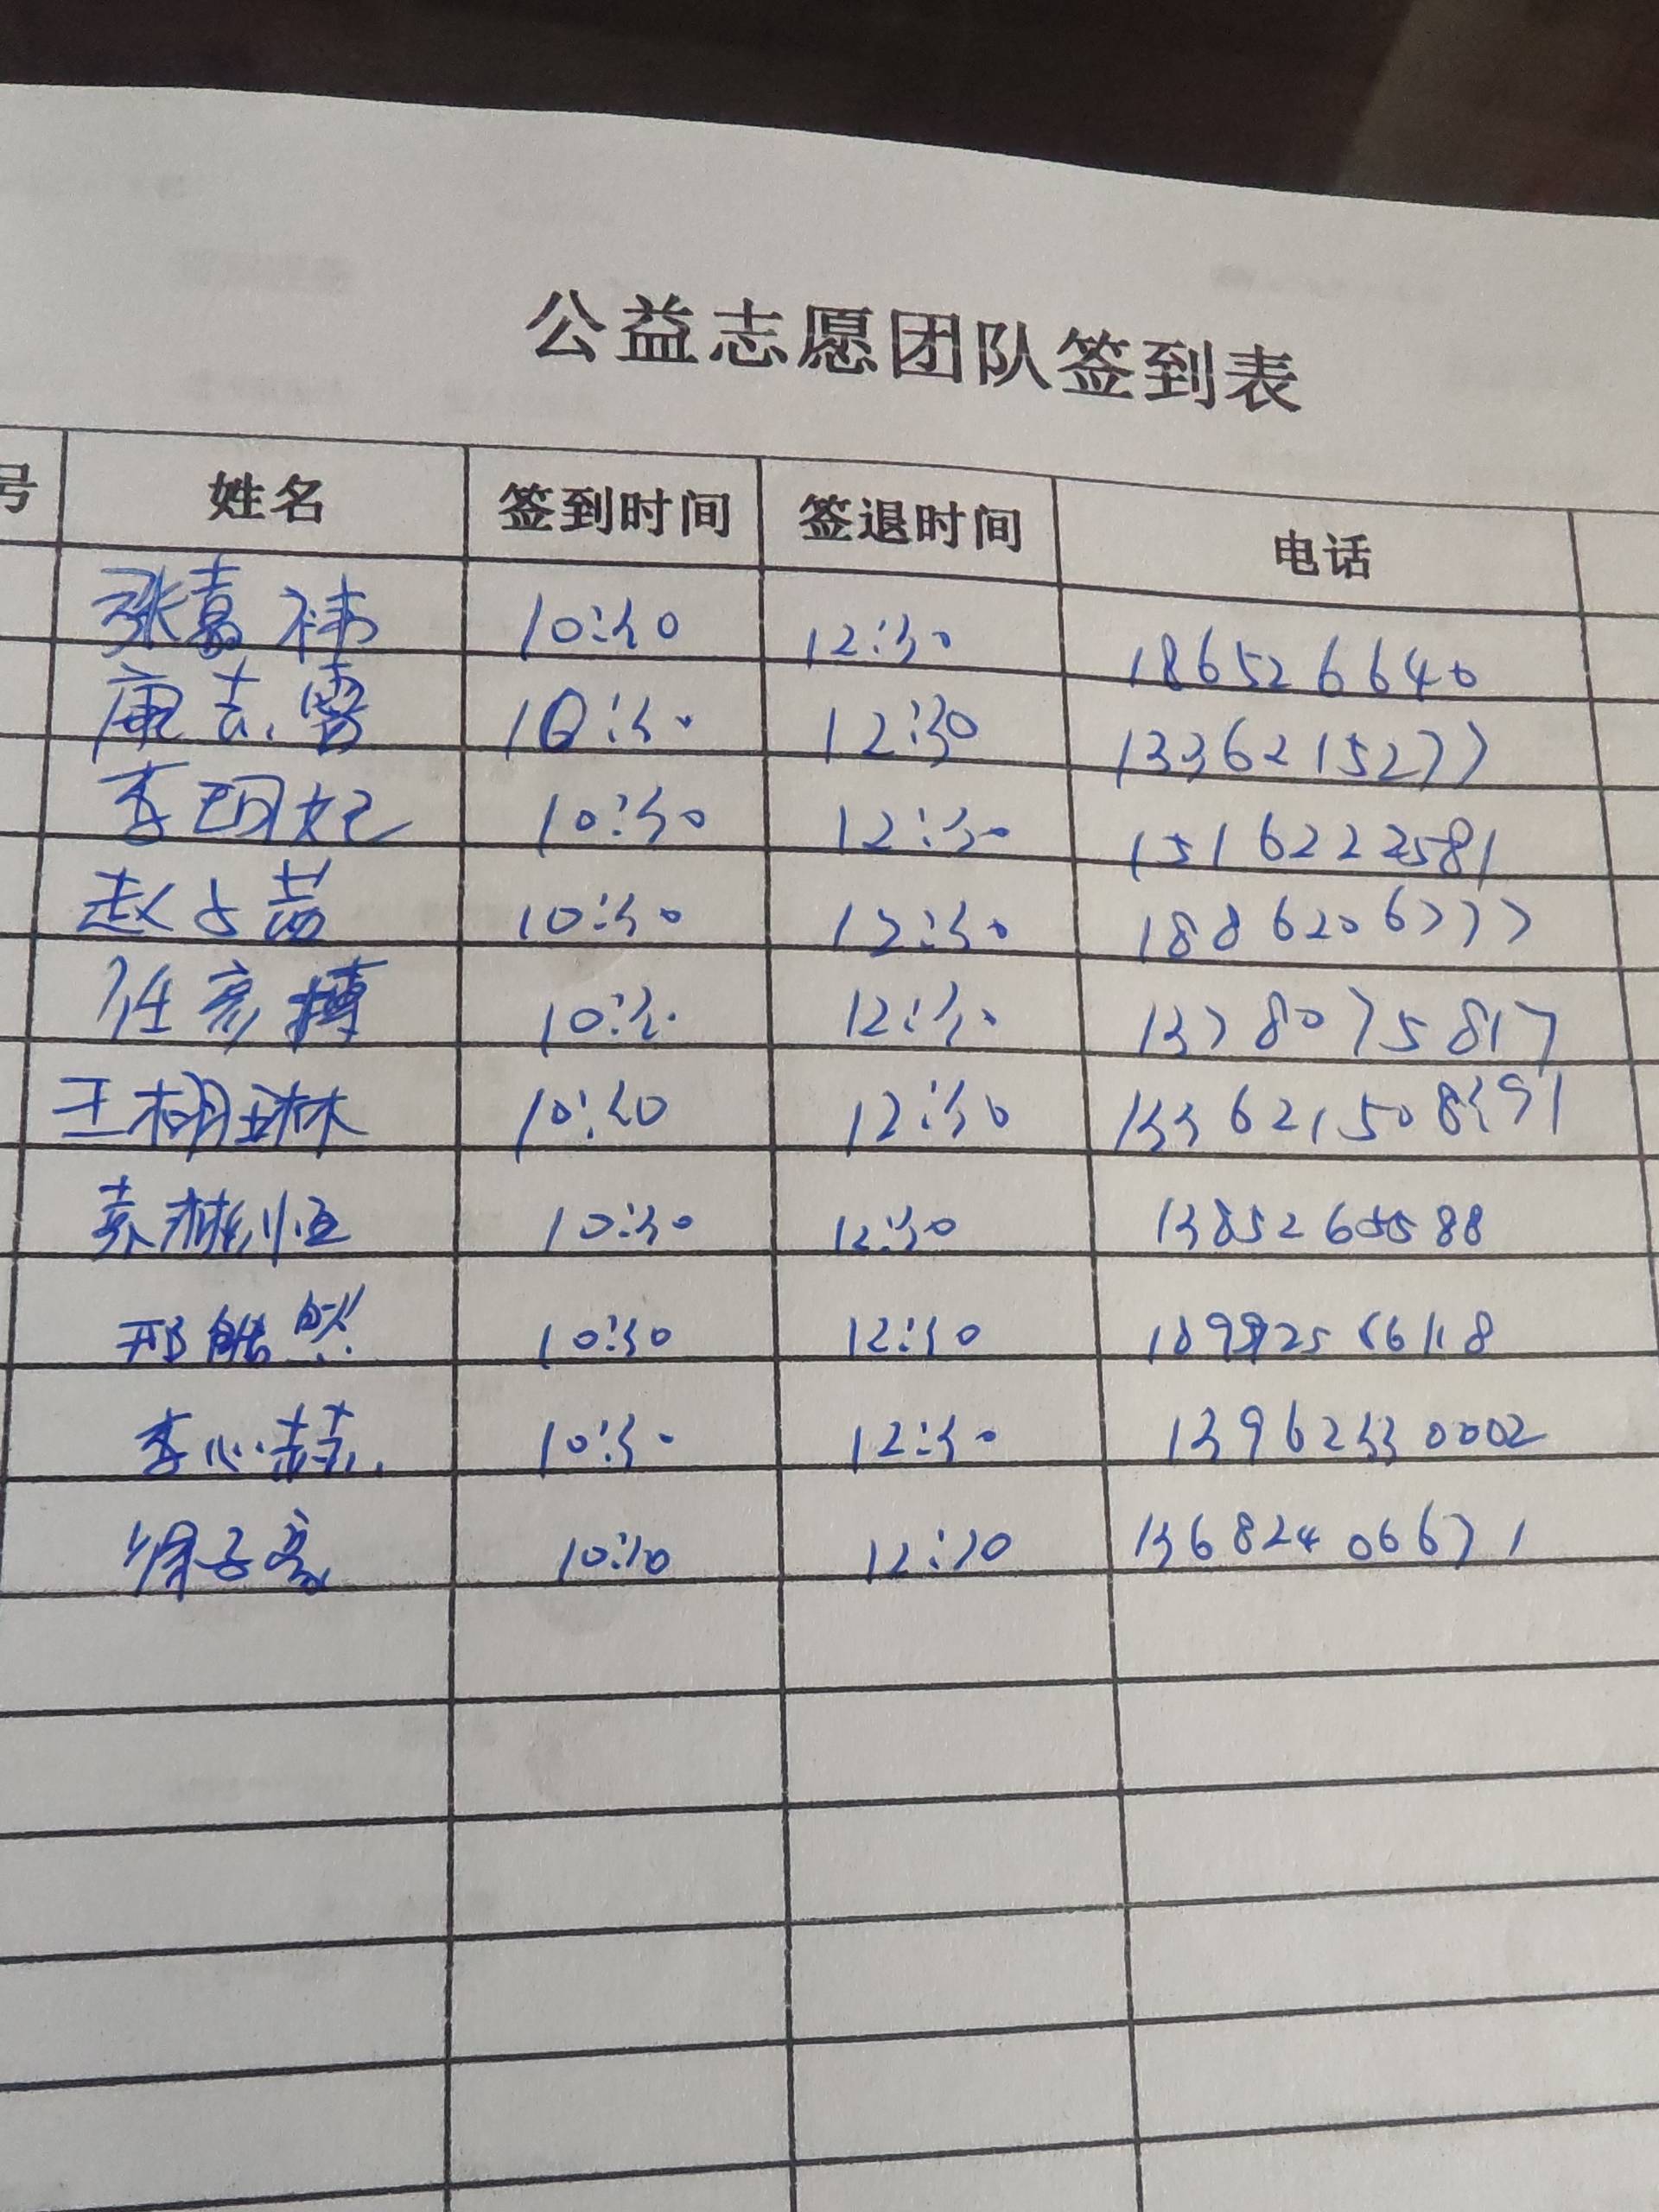 公益志愿团队签到表
号 姓名 签到时间 签退时间 电话
张嘉祎 10:30 12:30 186526640
康志雷 10:30 12:30 13362215277
李玥妃 10:30 12:30 15162222581
赵占蕾 10:30 12:30 1886206777
任彦搏 10:30 12:30 1378075817
王栩琳 10:30 12:30 133621508391
恒 10:30 12:30 1385260588
邢皓然 10:30 12:30
李心喆 10:30 12:30 13962330002
徐子亮 10:30 12:30 13682406671